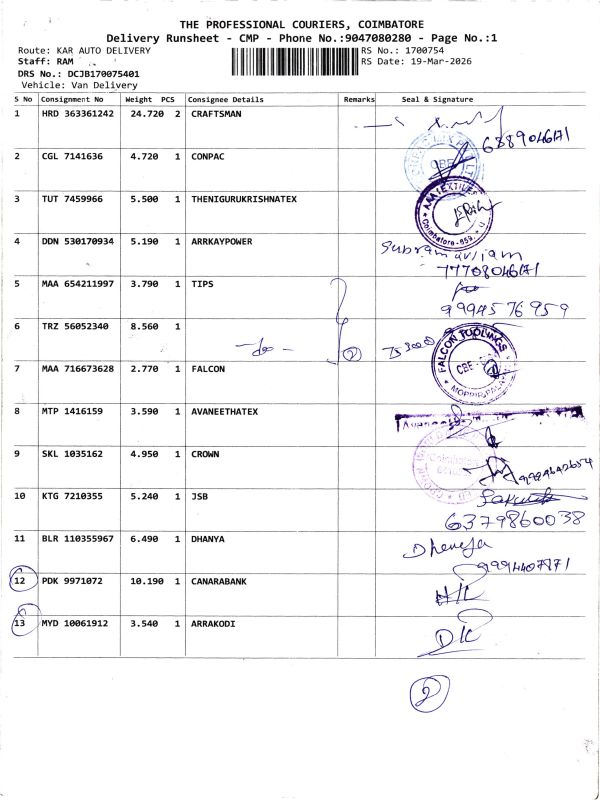 THE PROFESSIONAL COURIERS, COIMBATORE
Delivery Runsheet - CMP - Phone No.:9047080280 - Page No.:1
Route: KAR AUTO DELIVERY
RS No.: 1700754
Staff: RAM
RS Date: 19-Mar-2026
DRS No.: DCJB170075401
Vehicle: Van Delivery
S No Consignment No Weight PCS Consignee Details Remarks Seal & Signature
1 HRD 363361242 24.720 2 CRAFTSMAN
6389046171
2 CGL 7141636 4.720 1 CONPAC
CBE
3 TUT 7459966 5.500 1 THENIGURUKRISHNATEX
4 DDN 530170934 5.190 1 ARRKAYPOWER
Subramaniam
77708046171
5 MAA 654211997 3.790 1 TIPS
9994576959
6 TRZ 56052340 8.560 1
-do- 2
7 MAA 716673628 2.770 1 FALCON
FALCON TOOLINGS
CBE
8 MTP 1416159 3.590 1 AVANEETHATEX
9 SKL 1035162 4.950 1 CROWN
10 KTG 7210355 5.240 1 JSB
6379860038
11 BLR 110355967 6.490 1 DHANYA
9994407771
12 PDK 9971072 10.190 1 CANARABANK
13 MYD 10061912 3.540 1 ARRAKODI
DK
2